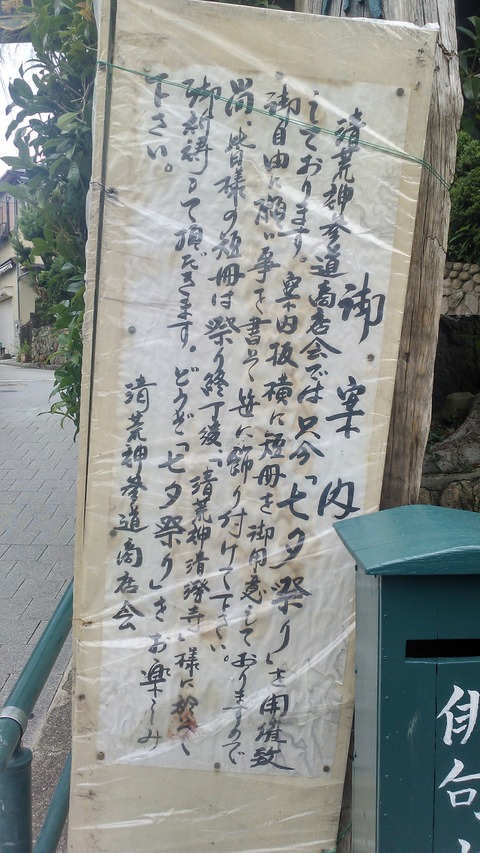 御案内
清荒神参道商店会では只今「七夕祭り」を開催致
しております。案内板横に短冊を御用意しておりますので
御自由に願い事を書き笹に飾り付けて下さい。
尚、皆様の短冊は祭り終了後、「清荒神清澄寺」様に於きて
御祈祷して頂だきます。どうぞ「七夕祭り」をお楽しみ
下さい。
清荒神参道商店会
俳句